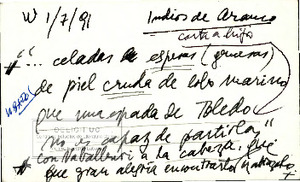 W 1/7/91 Indios de Arauco
carta a hijo
"... celadas espesas (gruesas)
de piel cruda de lobo marino
que una espada de Toledo
no es capaz de partirlos"
con a la cabeza. Qué
que gran alegría encontrarlo